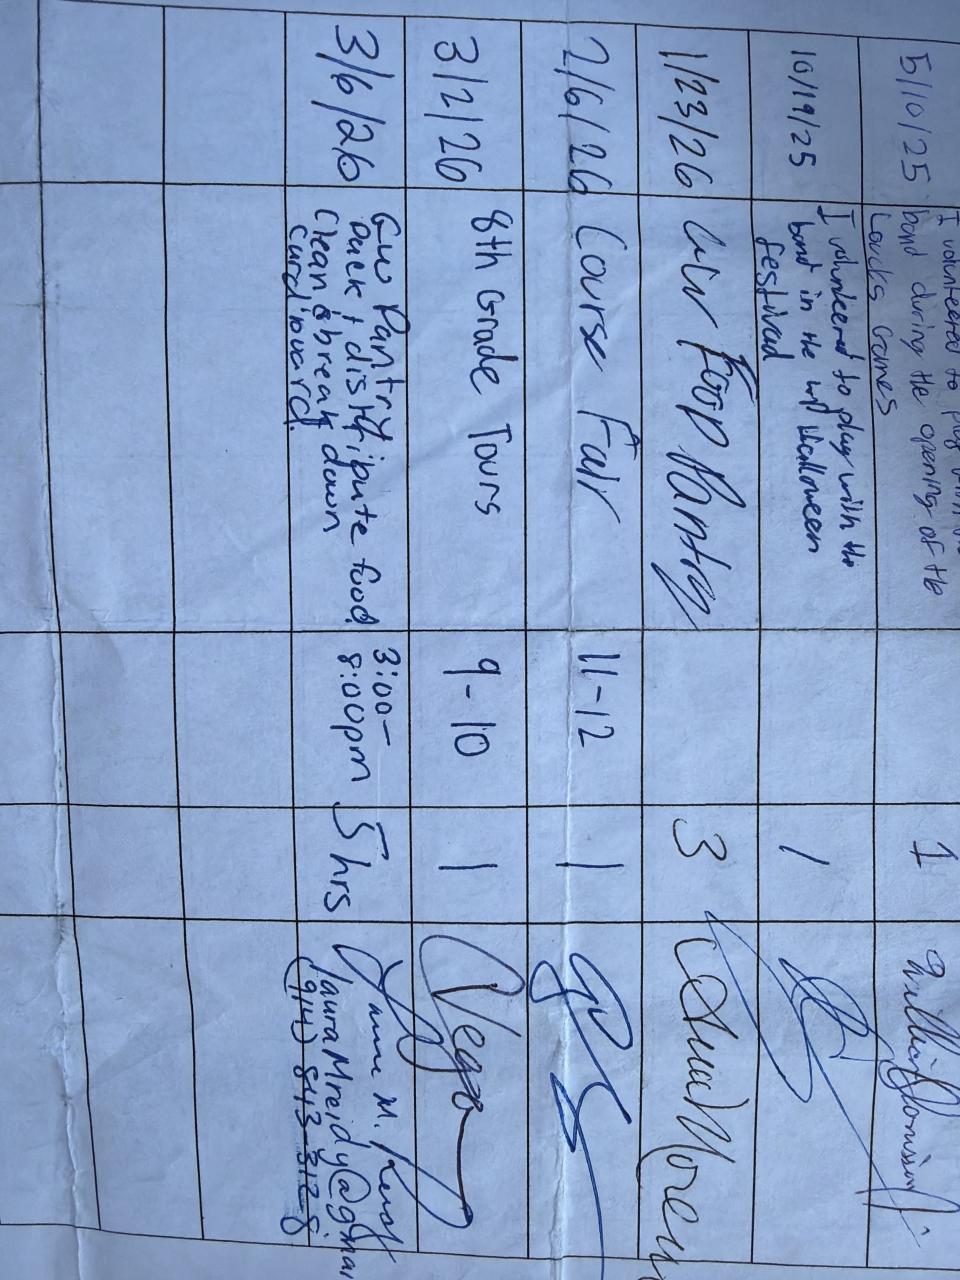 5/10/25
I volunteered to play with the
band during the opening of the
Loucks Games
1
10/19/25
I volunteered to play with the
band in the wp Halloween
festival
1
1/23/26
Food Pantry
3
2/6/26
Course Fair
11-12
1
3/2/26
8th Grade Tours
9-10
1
Vega
3/6/26
GW Pantry
Pack + distripute food
Clean & break down
curdipuard
3:00-
8:00pm
5 hrs
M.
lauraMreidy@gmai
(914) 843-3128